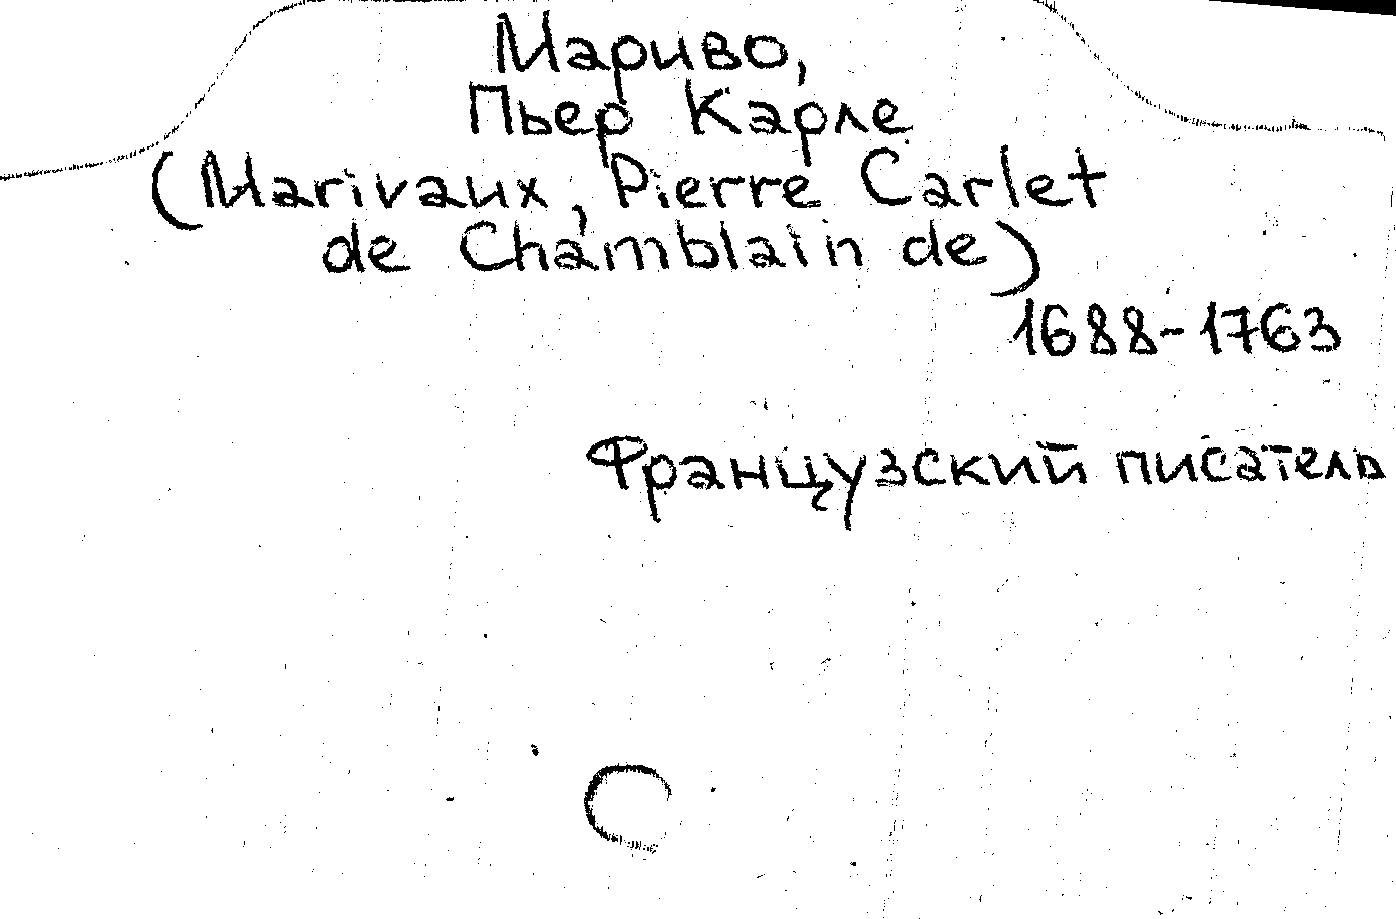 Мариво,
Пьер Карле
(Marivaux, Pierre Carlet
de Chamblain de)
1688-1763
Французский писатель